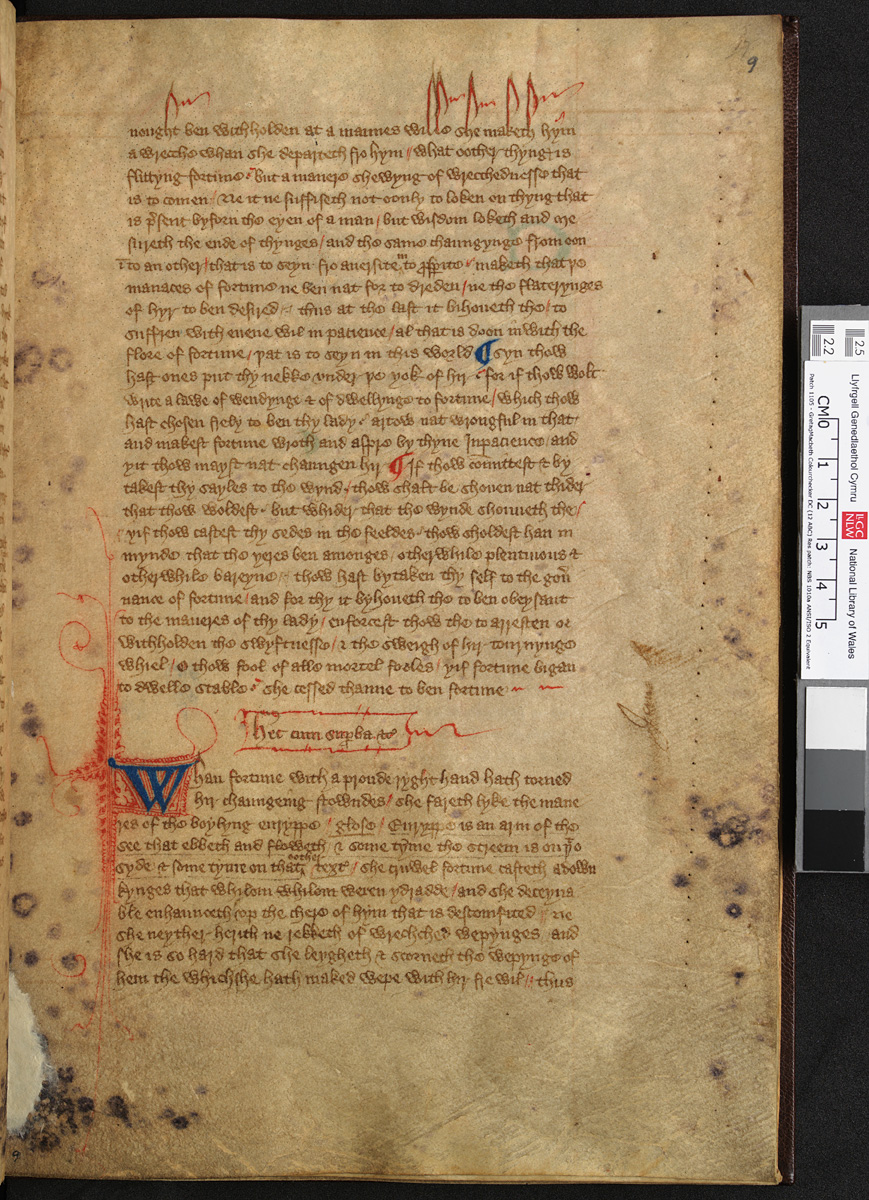 9
nought ben withholden at a mannes wille she maketh hym
a wrecche whan she departeth fro hym / what oother thyng is
flittyng fortune · but a manere shewyng of wrecchednesse that
is to comen · Ne it ne suffiseth not oonly to loken on thyng that
is p̾sent byforn the eyen of a man / but wisdom loketh and me
sureth the ende of thynges / and the same chaungynge from oon
in to an other / that is to seyn fro auersitee in to ꝓsp̾ite · maketh that þe
manaces of fortune ne ben nat for to dreden / ne the flaterynges
of hyr to ben desired · thus at the last it bihoueth the / to
suffren with euene wil in patience / al that is doon in with the
flore of fortune / þat is to seyn in this world ¶ Syn thow
hast ones put thy nekke vnder þe yok of hir · for if thow wolt
write a lawe of wendynge & of dwellynge to fortune / which thow
hast chosen frely to ben thy lady · artow nat wrongful in that
and makest fortune wroth and aspre by thyne Inpacience / and
yit thow mayst nat chaungen hir ¶ If thow comittest & by
takest thy sayles to the wynd · thow shalt be shouen nat thider
that thow woldest · but whider that the wynde shouueth the /
yif thow castest thy sedes in the feeldes · thow sholdest han in
mynde that the yeres ben amonges / otherwhile plentiuous &
otherwhile bareyne · thow hast bytaken thy self to the gou̾
nance of fortune / and for thy it byhoueth the to ben obeysant
to the maneres of thy lady / enforcest thow the to arresten or
withholden the swyftnesse / & the sweigh of hir tournynge
whiel / O thow fool of alle mortel fooles / yif fortune bigan
to dwelle stable · she cessed thanne to ben fortune
Hec cum sup̾ba &c̾
Whan fortune with a proude ryght hand hath torned
hir chaungeing stowndes / she fareth lyke the mane
res of the boylyng eurippe / glose / Eurippe is an arm of the
see that ebbeth and floweth / & some tyme the streem is on þo
syde & some tyme on that oother / text / she cruwel fortune casteth adown
kynges that whilom whilom weren ydradde / and she deceyua
ble enhaunceth vp the chere of hym that is descomfited / ne
she neyther herith ne rekketh of wrechched wepynges / and
she is so hard that she leygheth & scorneth the wepynge of
hem the which she hath maked wepe with hir fre wil / thus
2.2
2.5
CM 0 1 2 3 4 5
Llyfrgell Genedlaethol Cymru
LlGC
NLW
National Library of Wales